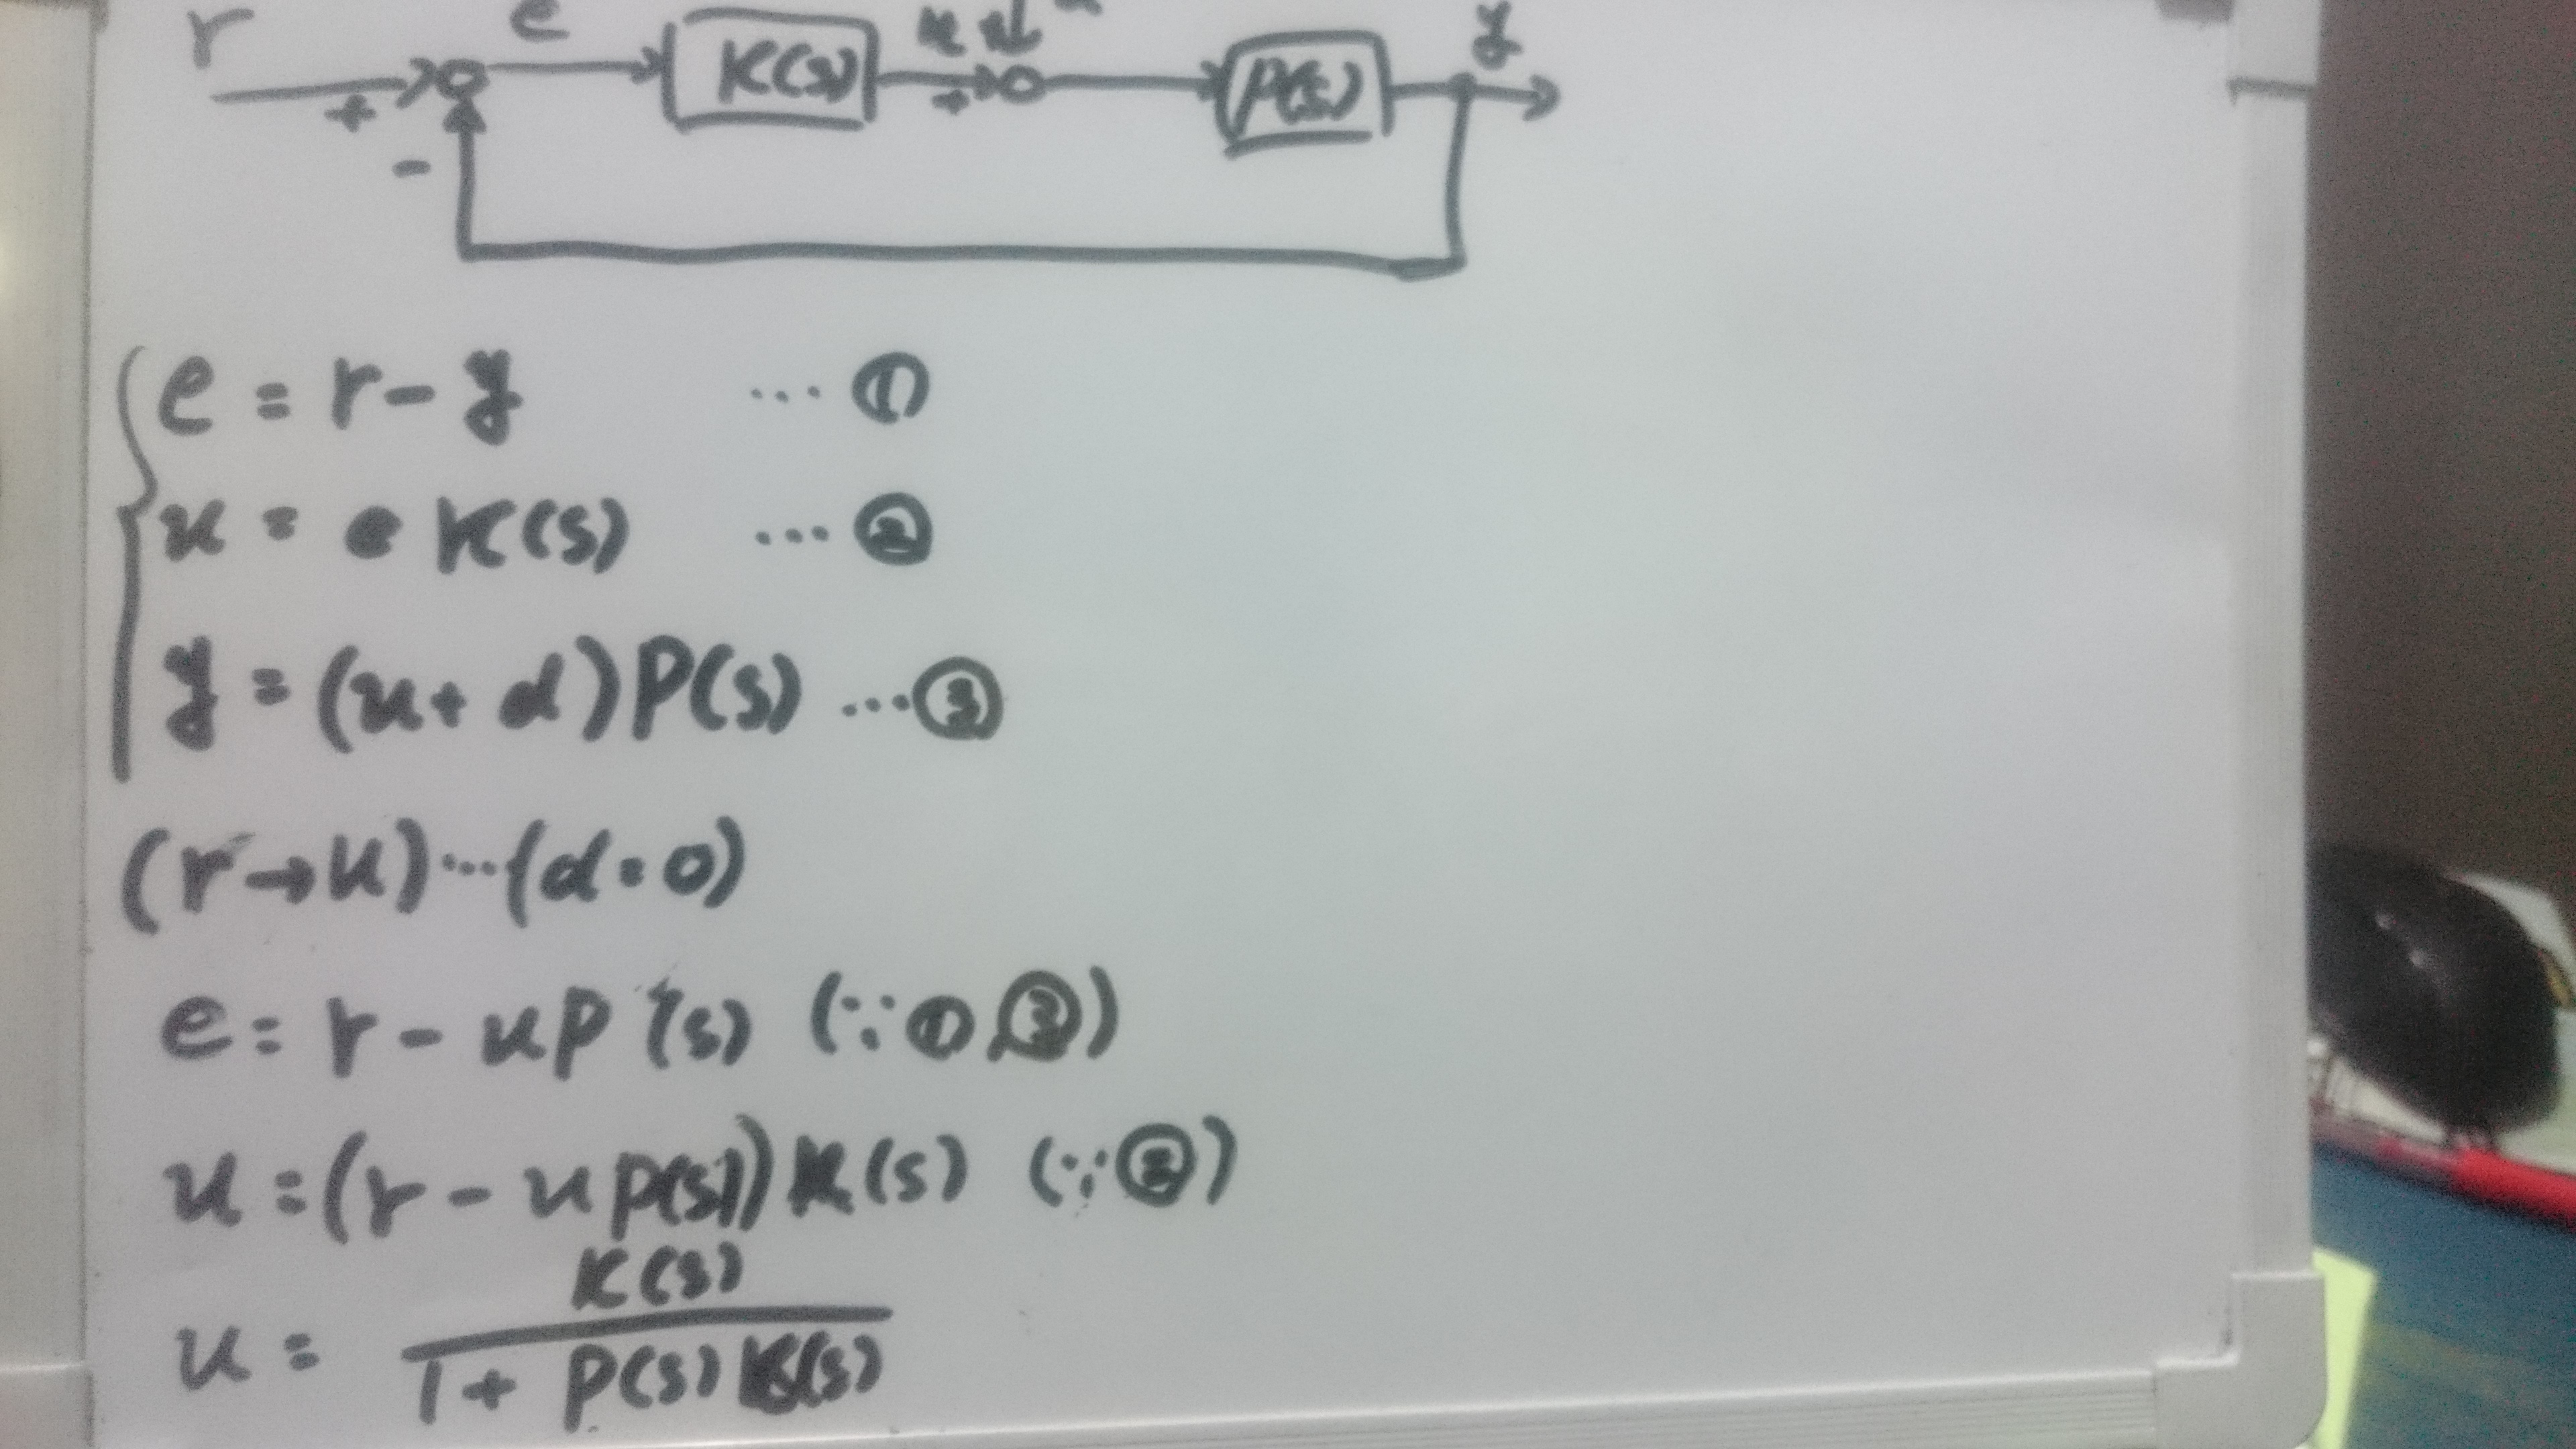 r e K(s) u P(s) y
+ +
-
e = r - y ... ①
u = e K(s) ... ②
y = (u + d) P(s) ... ③
(r → u) ... (d = 0)
e = r - u P(s) (∵ ①, ③)
u = (r - u P(s)) K(s) (∵ ②)
K(s)
u =
1 + P(s) K(s)